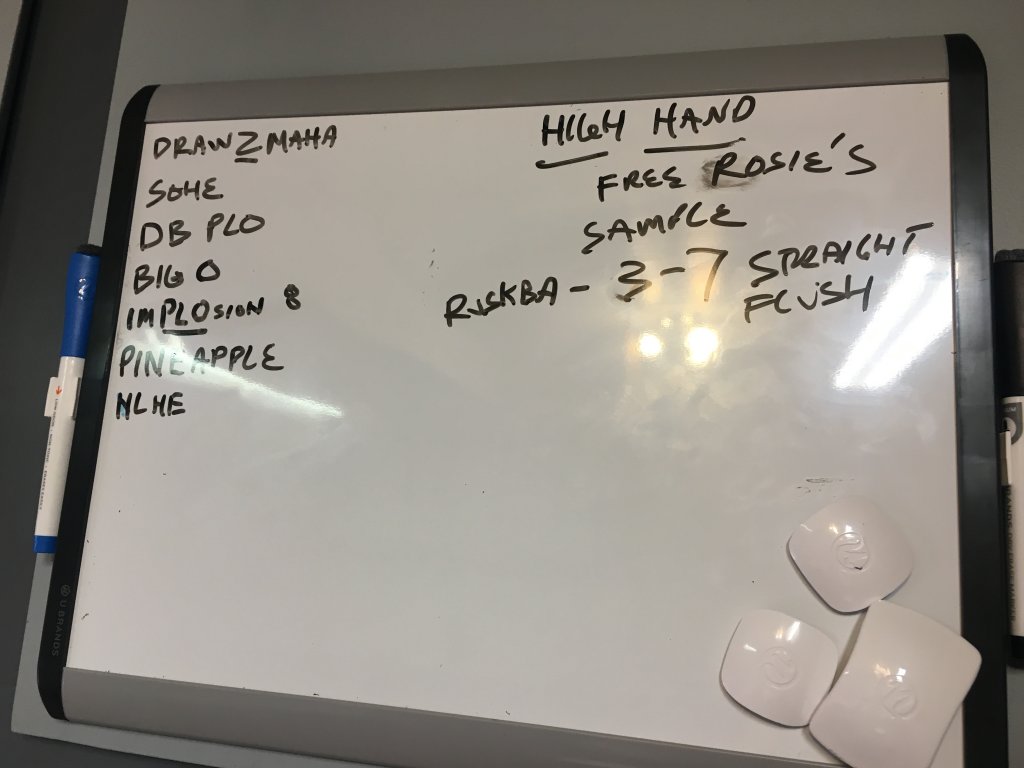 DRAWZMAHA
SOHE
DB PLO
BIG O
IMPLOSION 8
PINEAPPLE
NLHE
HIGH HAND
FREE ROSIE'S
SAMPLE
RISKBA - 3-7 STRAIGHT
FLUSH
U BRANDS